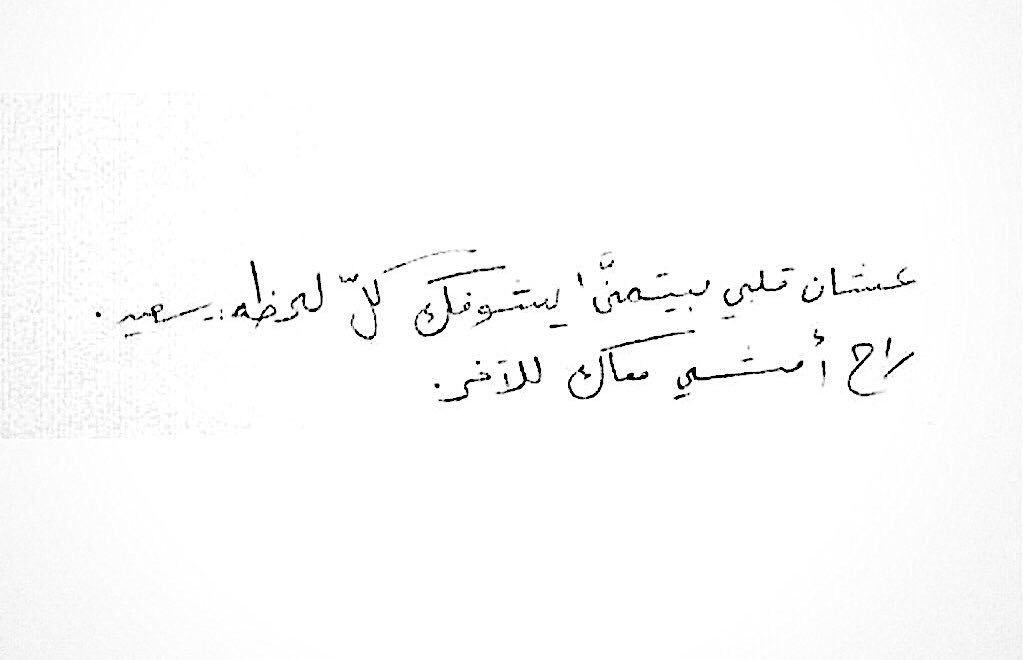 عشان قلبي بيتمنَّى يشوفك كلّ لحظه.. سعيد.
راح أمشي معاك للآخر.